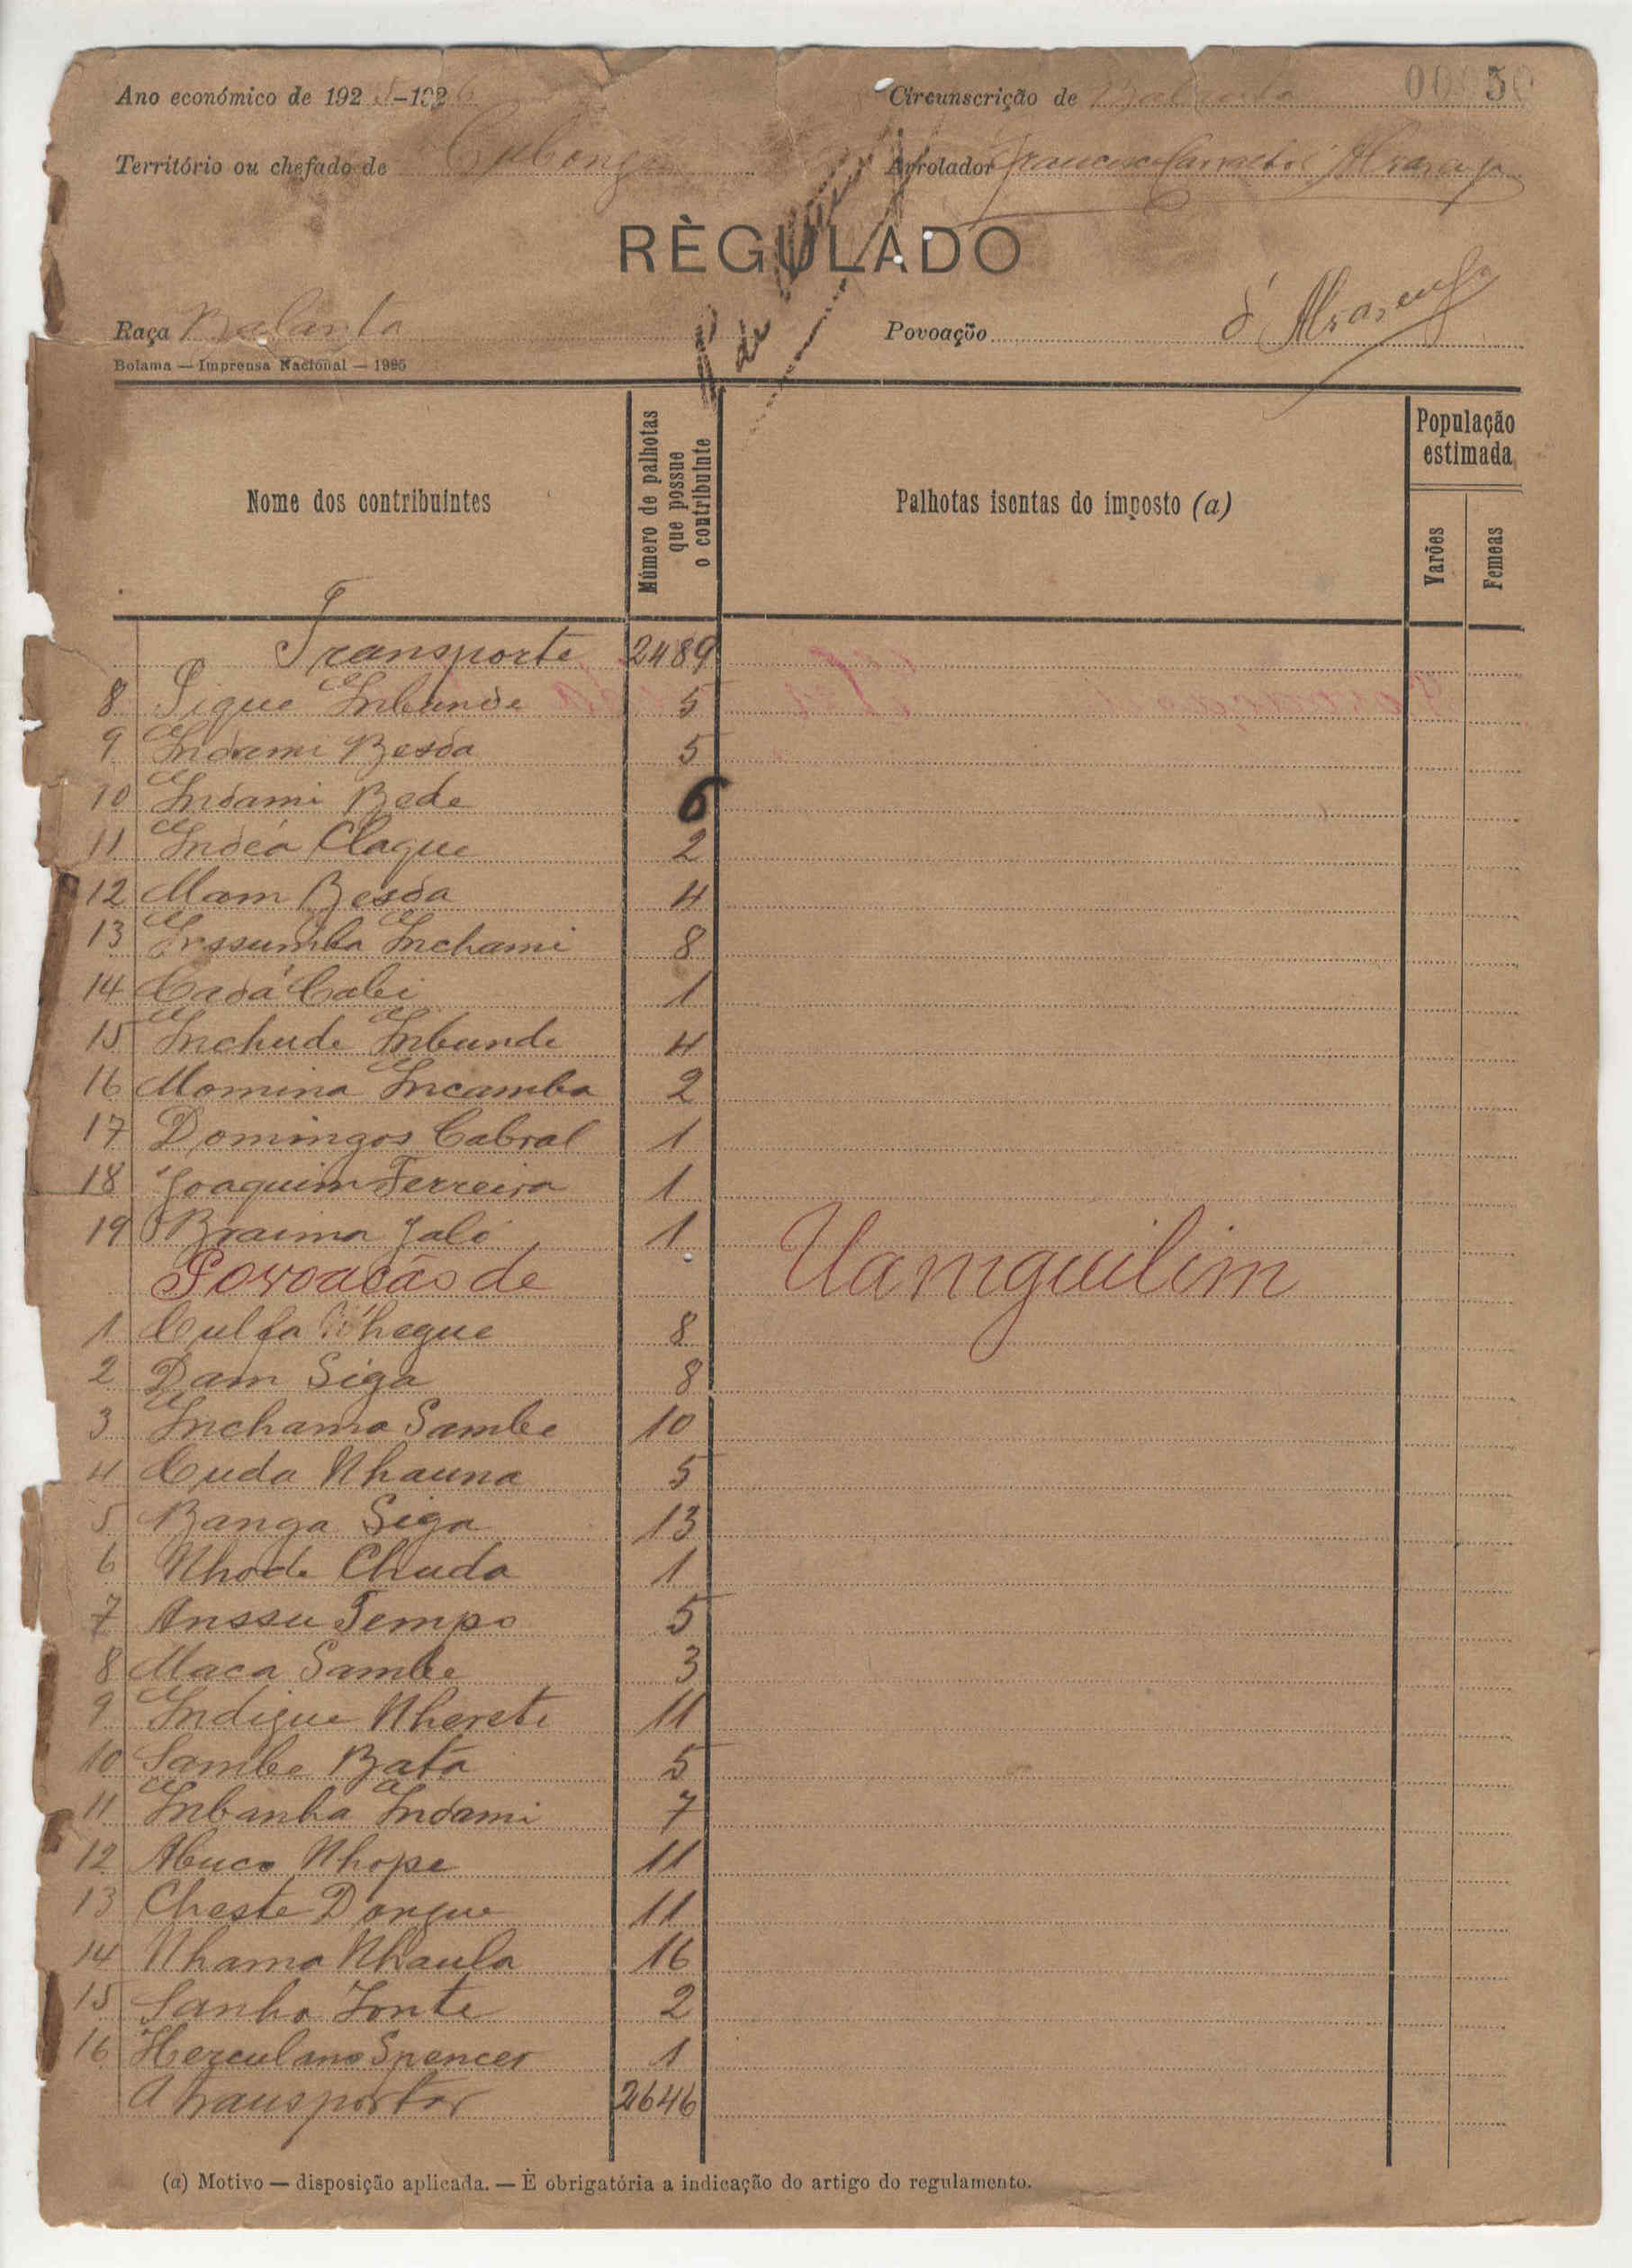 Ano económico de 1925-1926
Circunscrição de
Território ou chefado de Cubonge
Arrolador Francisco Carvalho d'Alvarenga
RÈGULADO
Raça Balanta
Povoação
d'Alvarenga
Bolama — Imprensa Nacional — 1925
Nome dos contribuintes
Número de palhotas que possue o contribuinte
Palhotas isentas do imposto (a)
População estimada
Varões
Femeas
Transporte 2489
8 Sigue Inbunde 5
9 Indami Besda 5
10 Indami Bede 6
11 Indéa Claque 2
12 Mam Besda 4
13 Inssumba Inchami 8
14 Cadá Cabi 1
15 Inchude Inbunde 4
16 Momina Incamba 2
17 Domingos Cabral 1
18 Joaquim Ferreira 1
19 Braima Jaló 1
Povoação de Uamguilim
1 Culfa Chegue 8
2 Dam Siga 8
3 Inchama Sambe 10
4 Cuda Nhauna 5
5 Banga Siga 13
6 Nhode Chuda 1
7 Anssu Tempo 5
8 Maca Sambe 3
9 Indigue Nherete 11
10 Sambe Bata 5
11 Inbanha Indami 7
12 Abuco Nhope 11
13 Cheste Dongue 11
14 Nhama Nhaula 16
15 Sanha Fonte 2
16 Herculano Spencer 1
A transportar 2646
(a) Motivo — disposição aplicada. — È obrigatória a indicação do artigo do regulamento.